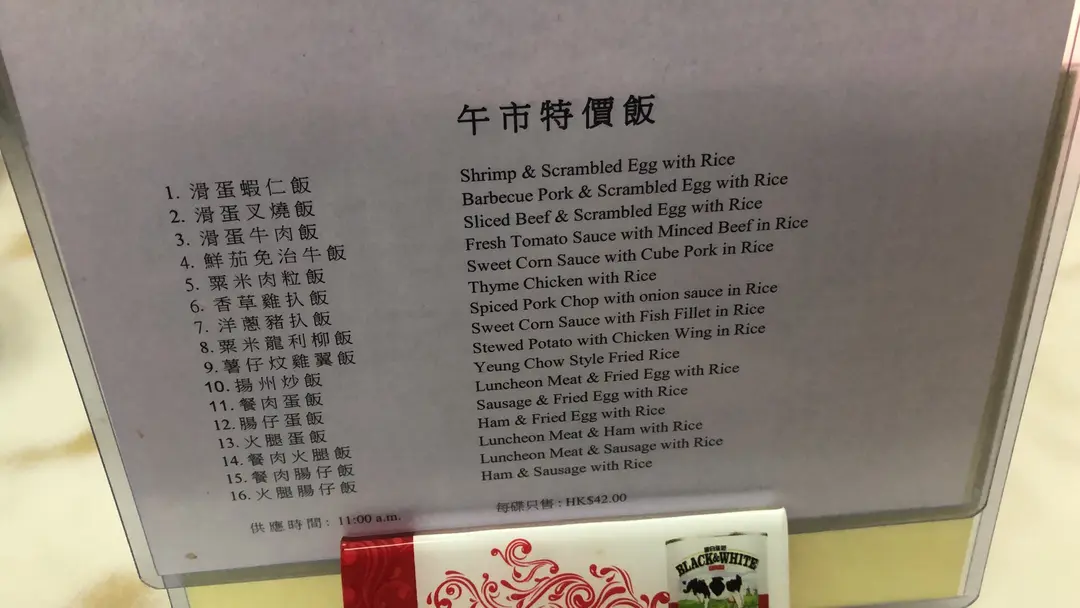 午市特價飯
1. 滑蛋蝦仁飯 Shrimp & Scrambled Egg with Rice
2. 滑蛋叉燒飯 Barbecue Pork & Scrambled Egg with Rice
3. 滑蛋牛肉飯 Sliced Beef & Scrambled Egg with Rice
4. 鮮茄免治牛飯 Fresh Tomato Sauce with Minced Beef in Rice
5. 粟米肉粒飯 Sweet Corn Sauce with Cube Pork in Rice
6. 香草雞扒飯 Thyme Chicken with Rice
7. 洋蔥豬扒飯 Spiced Pork Chop with onion sauce in Rice
8. 粟米龍利柳飯 Sweet Corn Sauce with Fish Fillet in Rice
9. 薯仔炆雞翼飯 Stewed Potato with Chicken Wing in Rice
10. 揚州炒飯 Yeung Chow Style Fried Rice
11. 餐肉蛋飯 Luncheon Meat & Fried Egg with Rice
12. 腸仔蛋飯 Sausage & Fried Egg with Rice
13. 火腿蛋飯 Ham & Fried Egg with Rice
14. 餐肉火腿飯 Luncheon Meat & Ham with Rice
15. 餐肉腸仔飯 Luncheon Meat & Sausage with Rice
16. 火腿腸仔飯 Ham & Sausage with Rice
供應時間: 11:00 a.m. 每碟只售 : HK$42.00
BLACK&WHITE